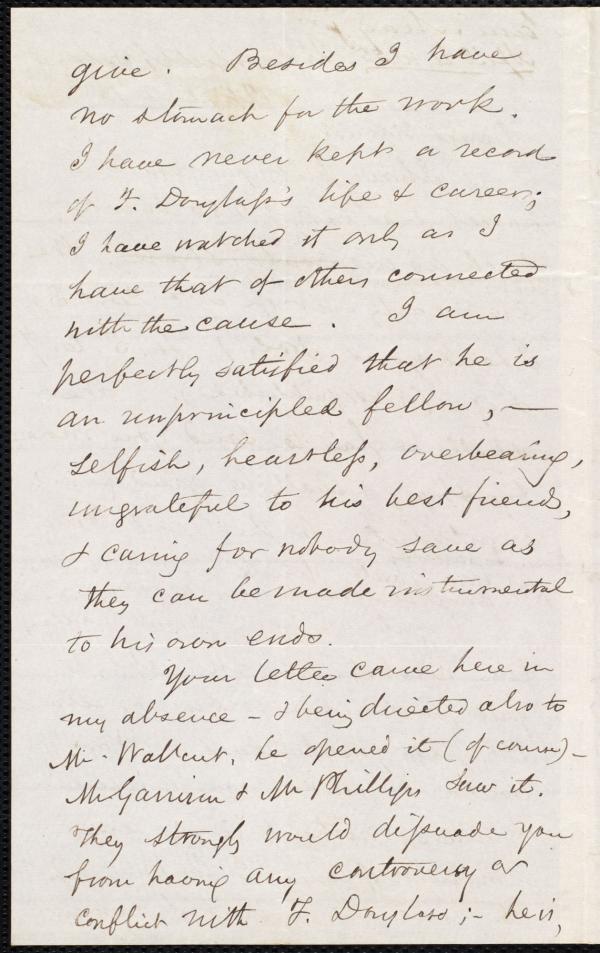 give. Besides I have
no stomach for the work.
I have never kept a record
of F. Douglass's life & career;
I have watched it only as I
have that of others connected
with the cause. I am
perfectly satisfied that he is
an unprincipled fellow, —
selfish, heartless, overbearing,
ungrateful to his best friends,
& caring for nobody save as
they can be made instrumental
to his own ends.
Your letter came here in
my absence – & being directed also to
Mr. Wallcut, he opened it (of course) –
Mr Garrison & Mr Phillips saw it.
They strongly would dissuade you
from having any controversy or
conflict with F. Douglass; – he is,